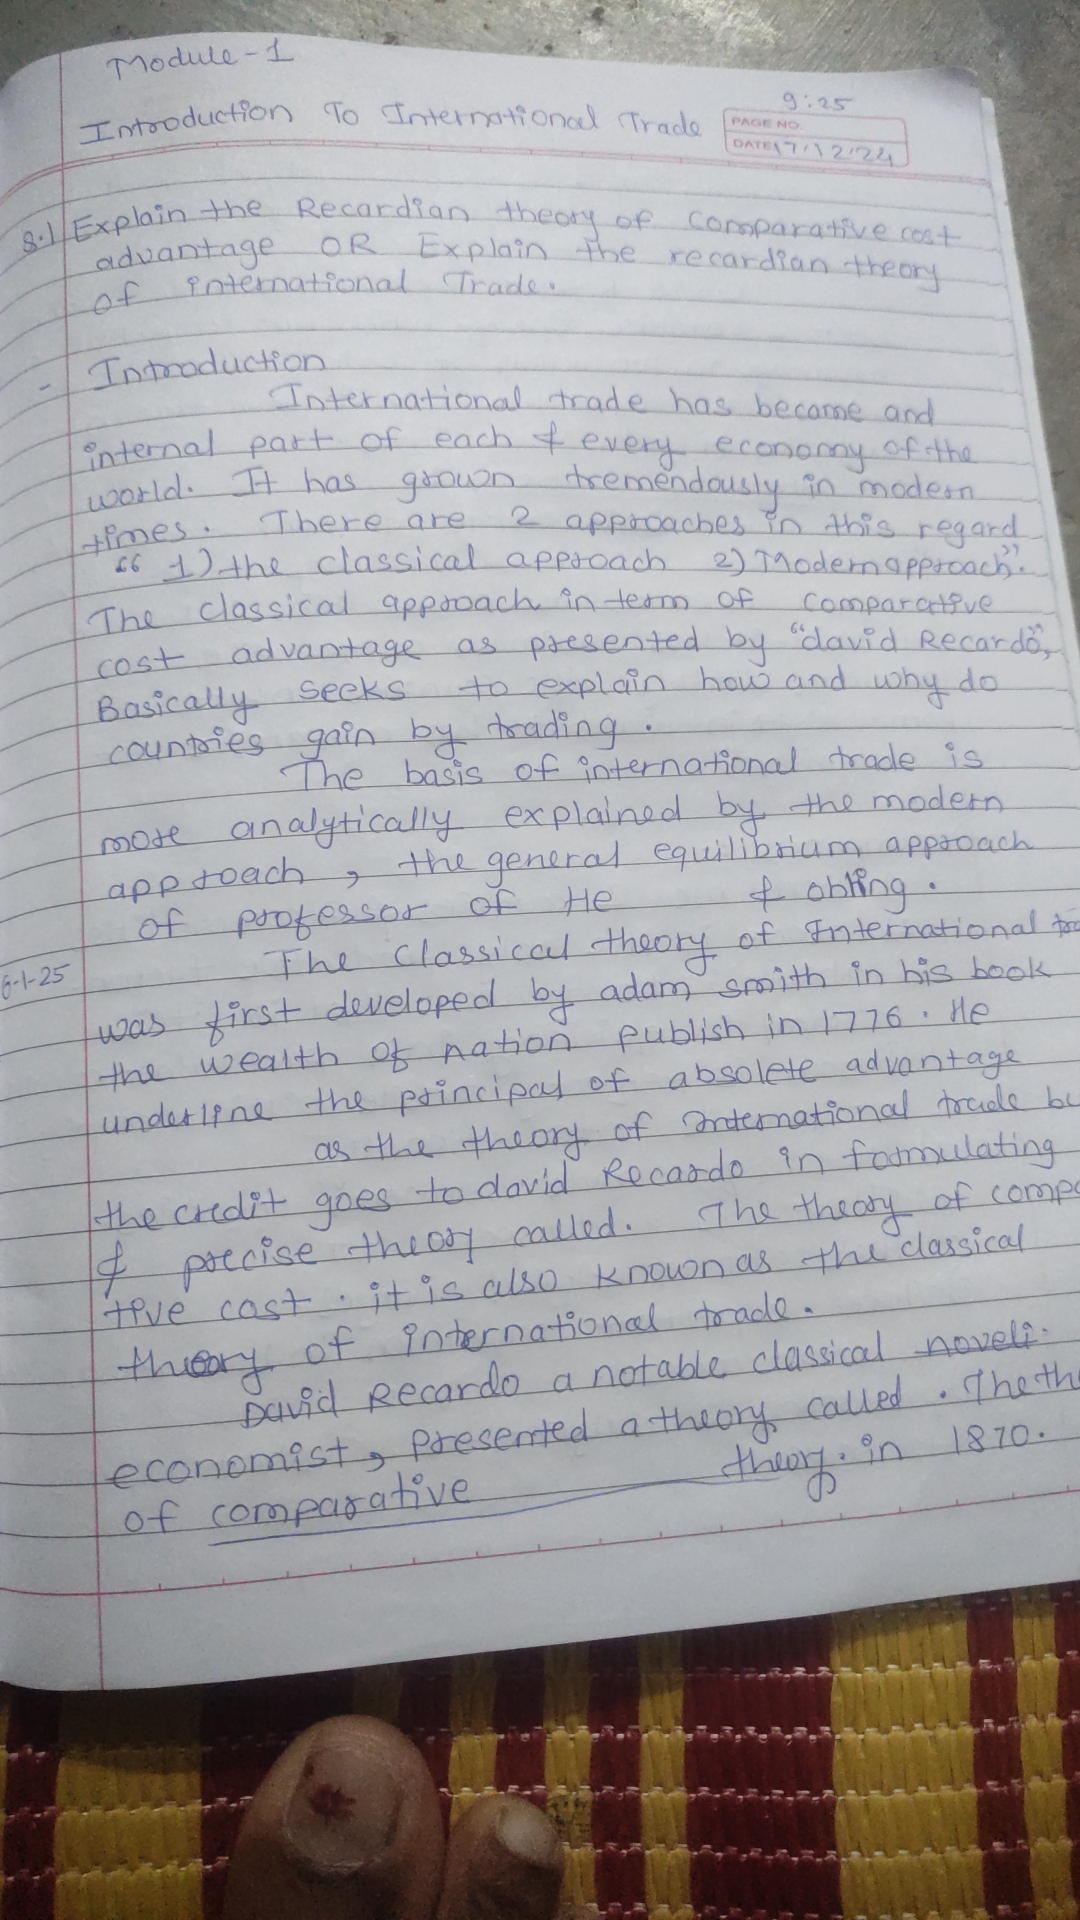 Module-1
9:25
Introduction To International Trade
PAGE NO.
DATE 17/12/24
Q.1 Explain the Recardian theory of comparative cost
advantage OR Explain the recardian theory
of international Trade.
- Introduction
International trade has become and
internal part of each & every economy of the
world. It has grown tremendously in modern
times. There are 2 approaches in this regard
“ 1) the classical approach 2) Modern approach”.
The classical approach in term of comparative
cost advantage as presented by “david Recardo”,
Basically seeks to explain how and why do
countries gain by trading.
The basis of international trade is
more analytically explained by the modern
approach, the general equilibrium approach
of professor of He & ohling.
The Classical theory of International tra
6-1-25
was first developed by adam smith in his book
the wealth of nation publish in 1776. He
underline the principal of absolete advantage
as the theory of International trade bu
the credit goes to david Recardo in formulating
& precise theory called. The theory of compa
tive cost. it is also known as the classical
theory of international trade.
David Recardo a notable classical noveli.
economist, presented a theory called. The th
of comparative theory. in 1870.